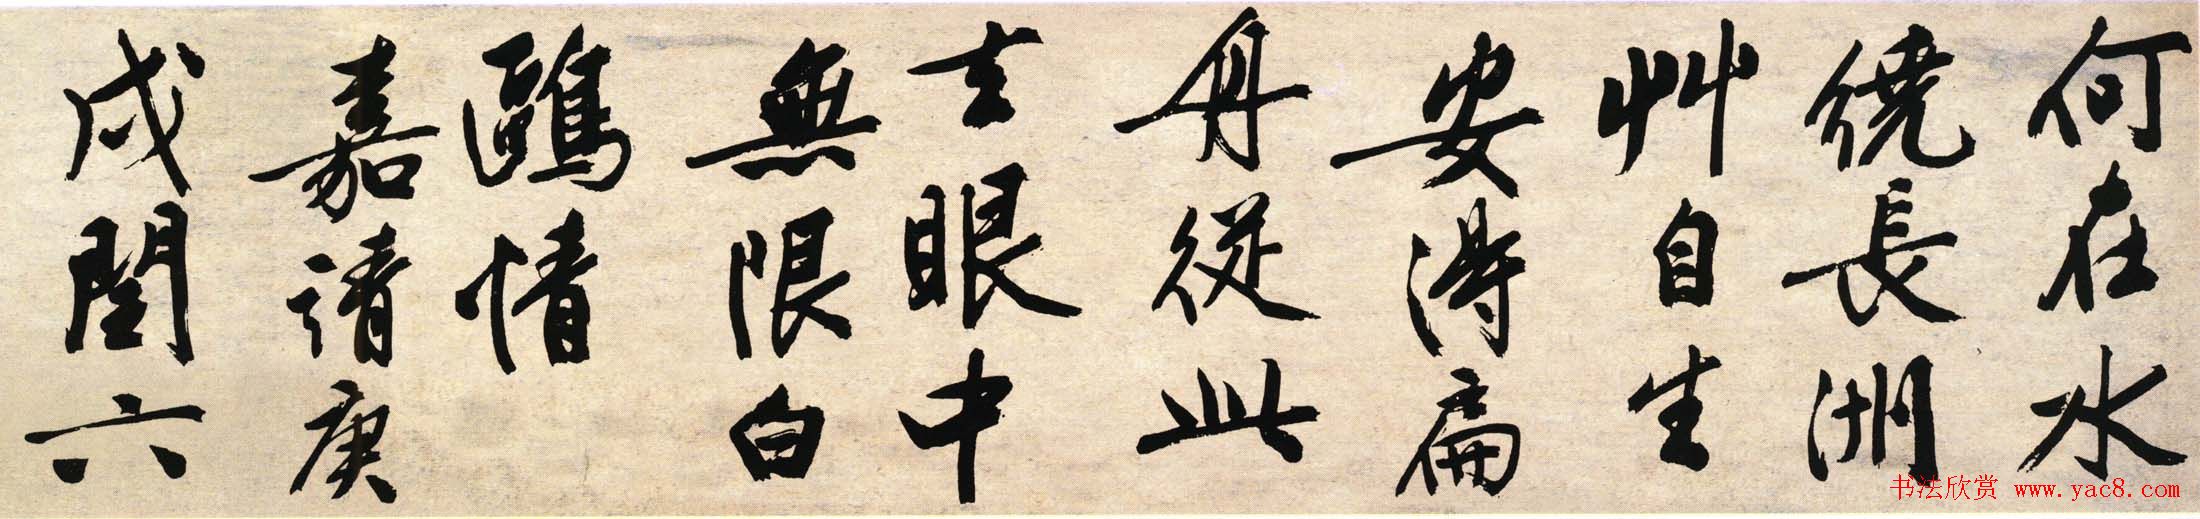 何在水
繞長洲
艸自生
安得扁
舟從此
去眼中
無限白
鷗情
嘉靖庚
戌閏六
书法欣赏 www.yac8.com